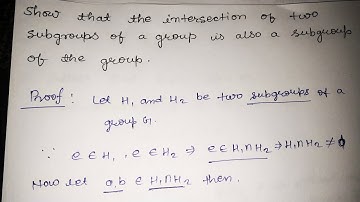 Show that the intersection of two
subgroups of a group is also a subgroup
of the group.
Proof : Let H₁ and H₂ be two subgroups of a
group G.
∵ e ∈ H₁, e ∈ H₂ ⇒ e ∈ H₁∩H₂ ⇒ H₁∩H₂ ≠ ϕ
Now let a,b ∈ H₁∩H₂ then.